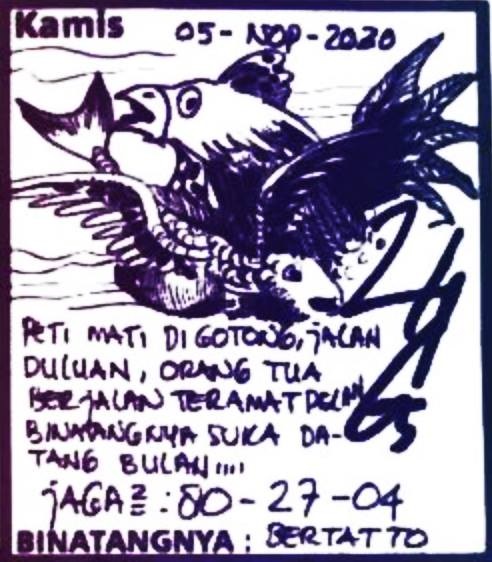 Kamis 05-NOP-2020
24
65
PETI MATI DI GOTONG, JALAN
DULUAN, ORANG TUA
BERJALAN TERAMAT
BINATANGNYA SUKA DA-
TANG BULAN....
JAGA2 : 80-27-04
BINATANGNYA : BERTATTO